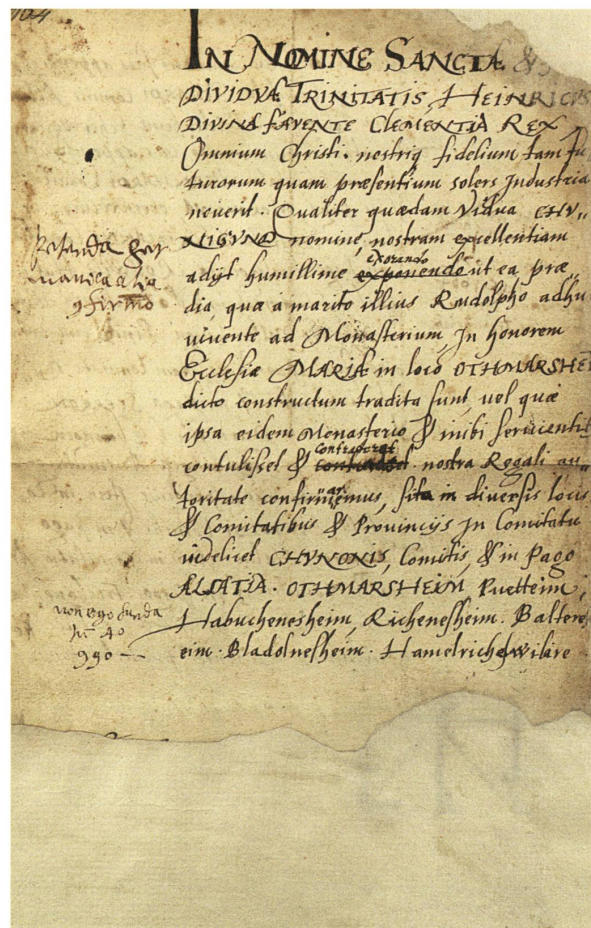 104
IN NOMINE SANCTÆ &
DIVIDVÆ TRINITATIS, HEINRICVS
DIVINA FAVENTE CLEMENTIA REX
Omnium Christi. nostriq fidelium tam fu
turorum quam præsentium solers Industria
neverit. Qualiter quædam Vidua CHV,,
NIGVND nomine, nostram excellentiam
exorando
adijt humillime exponendo ut ea præ,,
dia, quæ à marito illius Rudolpho adhu
uiuente ad Monasterium, In honorem
Ecclesiæ MARIÆ in loco OTHMARSHEI
dicto constructum tradita sunt, uel quæ
ipsa eidem Monasterio & inibi seruientib
contulisset & nostra Regali au,,
toritate confirmaremus, sita in diuersis locis
& Comitatibus & Prouincijs In Comitatu
uidelicet CHVNONIS, Comitis, & in Pago
ALSATIA. OTHMARSHEIM Ruetteim,
Habuchenesheim, Richenesheim. Balters
eim. Bladolnesheim. Hamelricheswilare
non ergo funda
40
990